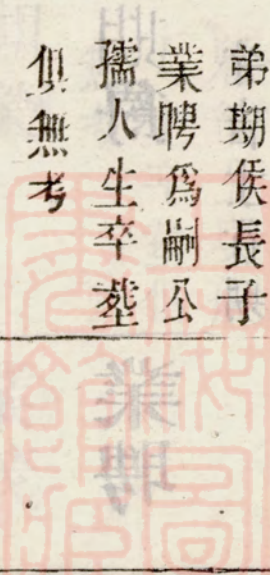 弟期侯長子
業聘爲嗣公
孺人生卒塟
俱無考